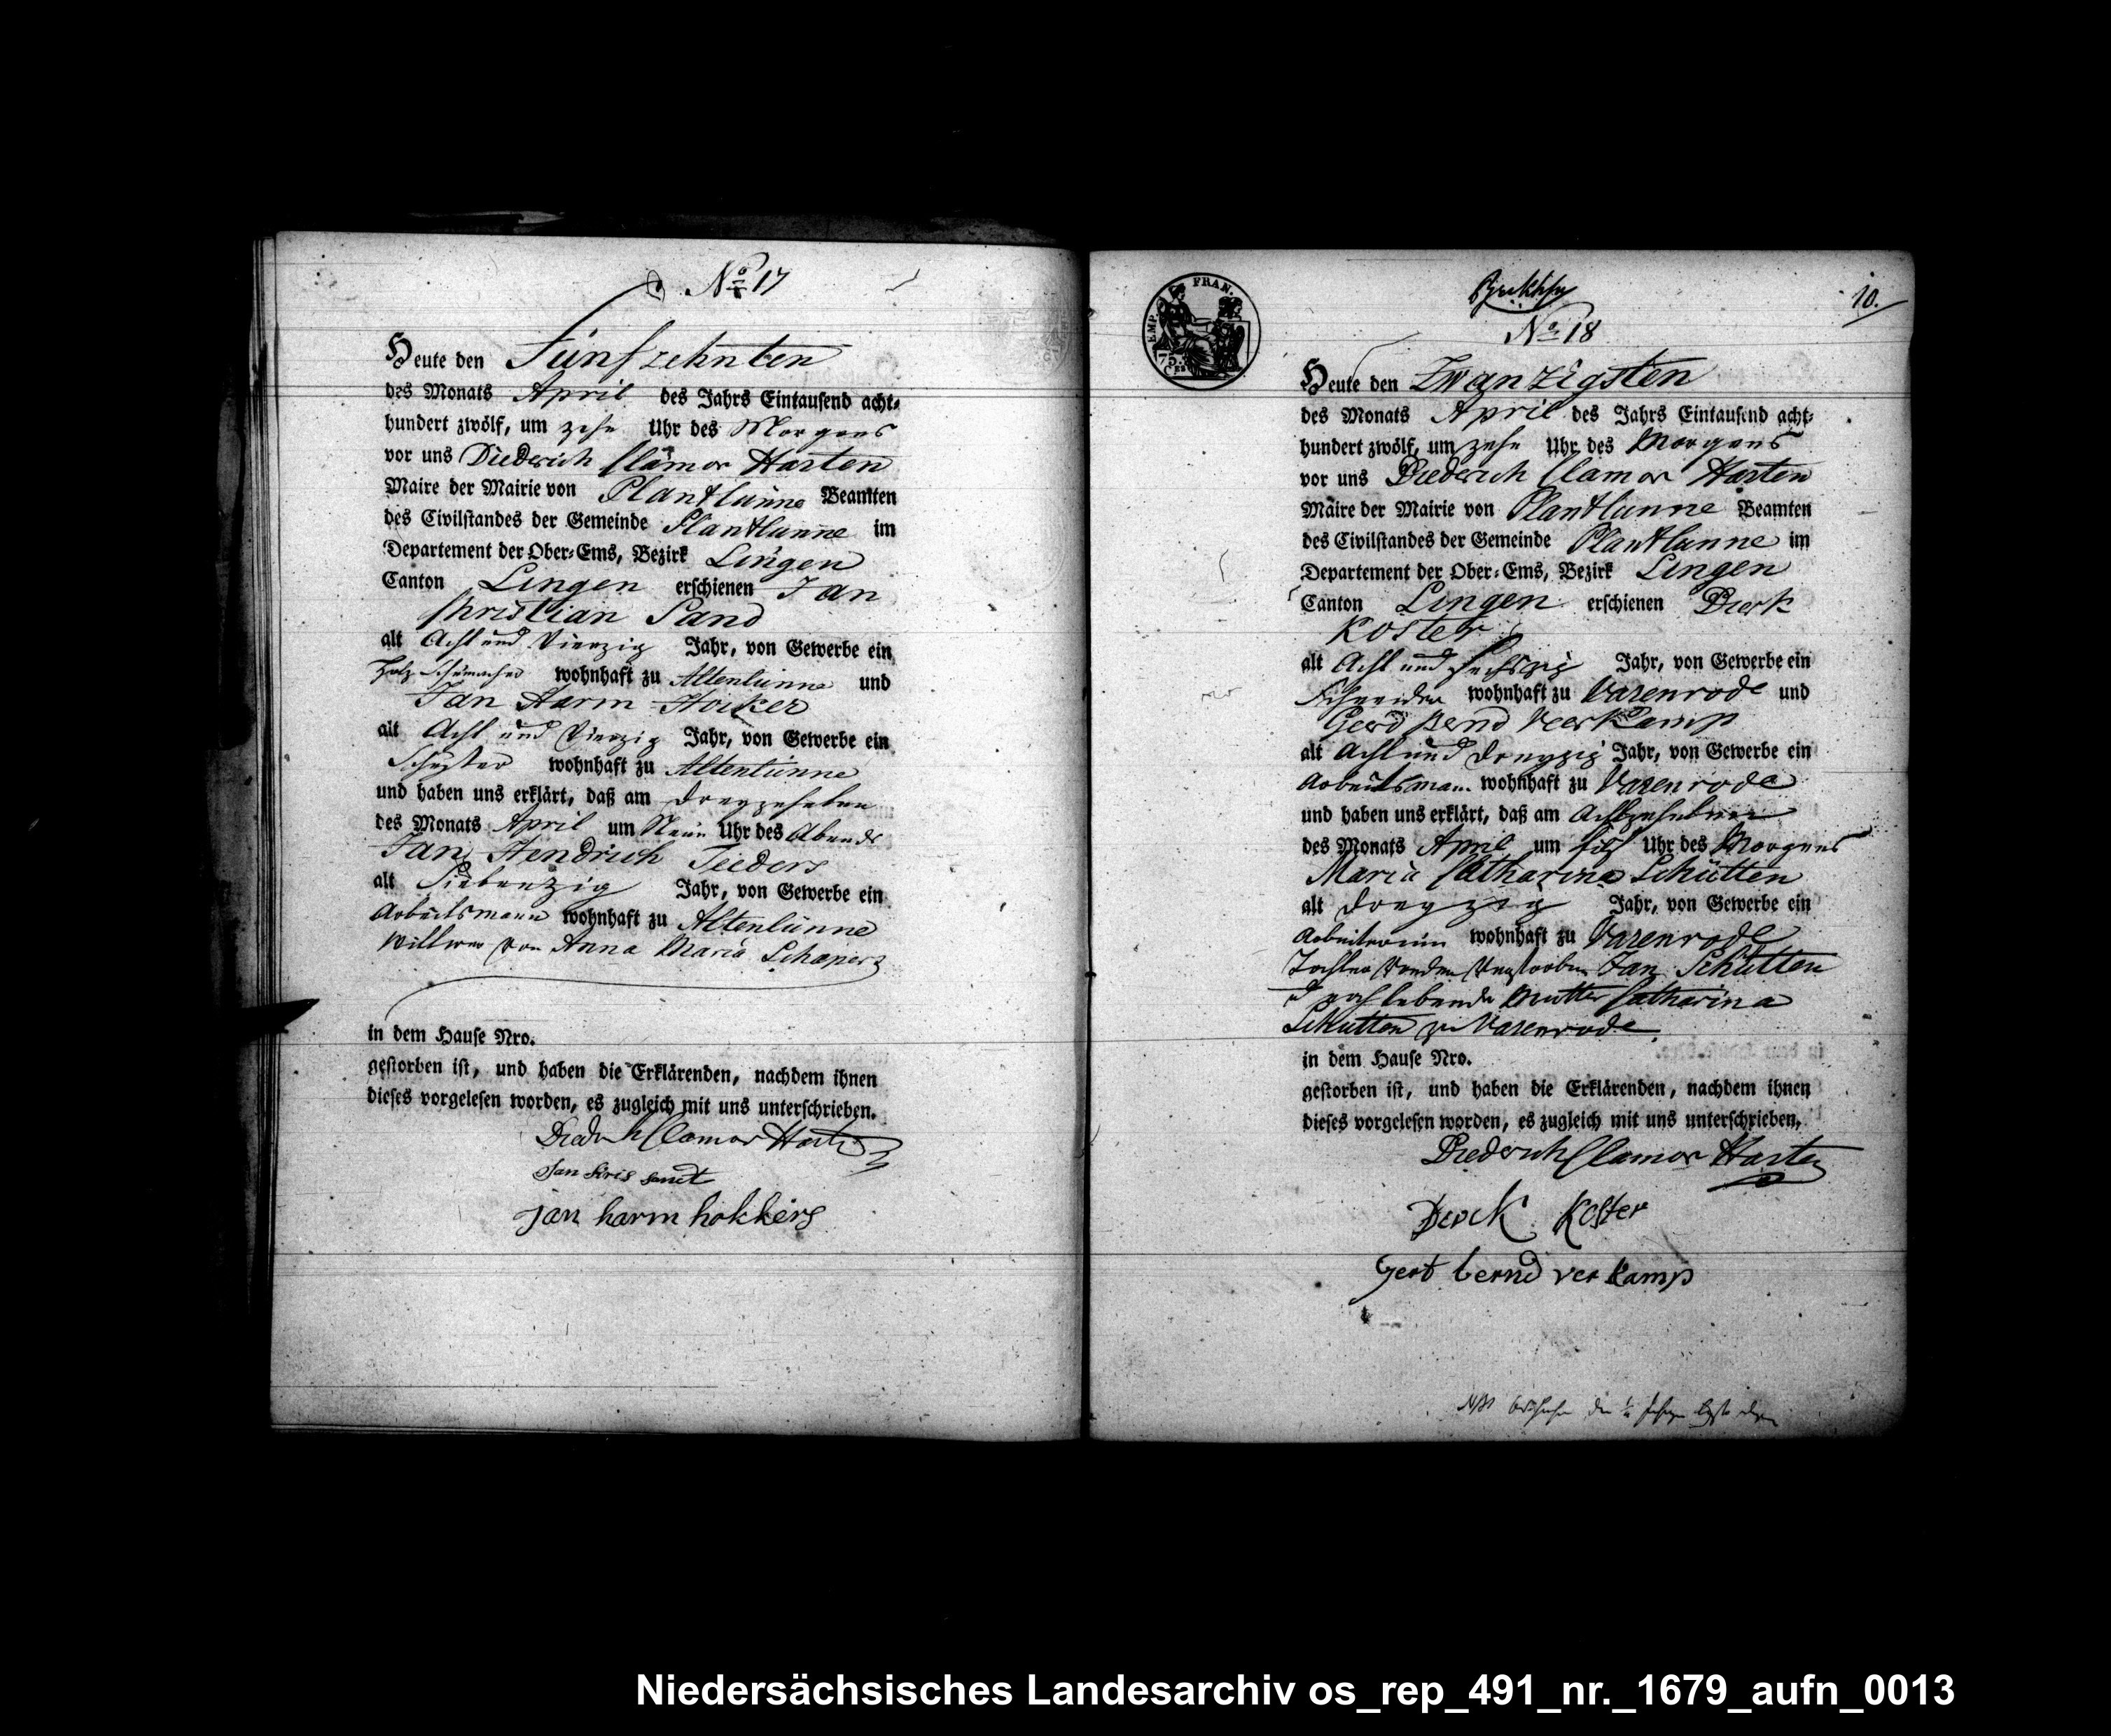 No 17
Heute den Fünfzehnten
des Monats April des Jahrs Eintausend acht-
hundert zwölf, um zehn Uhr des Morgens
vor uns Diederich Clamor Harten
Maire der Mairie von Plantlünne Beamten
des Civilstandes der Gemeinde Plantlunne im
Departement der Ober-Ems, Bezirk Lingen
Canton Lingen erschienen Jan
Christian Sand
alt Acht und Vierzig Jahr, von Gewerbe ein
Holz Schumacher wohnhaft zu Altenlunne und
Jan Harm Hocker
alt Acht und Vierzig Jahr, von Gewerbe ein
Schuster wohnhaft zu Altenlünne
und haben uns erklärt, daß am dreyzehnten
des Monats April um Neun Uhr des Abends
Jan Hendrich Teeders
alt Siebenzig Jahr, von Gewerbe ein
Arbeitsmann wohnhaft zu Altenlünne
Wittwer von Anna Maria Schapers
in dem Hause Nro.
gestorben ist, und haben die Erklärenden, nachdem ihnen
dieses vorgelesen worden, es zugleich mit uns unterschrieben.
Diederich Clamor Harten
Jan Kris sandt
jan harm hokkers
EMP. FRAN.
75.
CES
10.
No 18
Heute den Zwanzigsten
des Monats April des Jahrs Eintausend acht-
hundert zwölf, um zehn Uhr des Morgens
vor uns Diederich Clamor Harten
Maire der Mairie von Plantlunne Beamten
des Civilstandes der Gemeinde Plantlunne im
Departement der Ober-Ems, Bezirk Lingen
Canton Lingen erschienen Dierk
Koster
alt Acht und sechszig Jahr, von Gewerbe ein
Schneider wohnhaft zu Varenrode und
Gerd Bernd Veerkamp
alt Acht und dreyzig Jahr, von Gewerbe ein
Arbeitsmann wohnhaft zu Varenrode
und haben uns erklärt, daß am Achtzehnten
des Monats April um Uhr des Morgens
Maria Catharina Schütten
alt dreyzig Jahr, von Gewerbe ein
Arbeiterinn wohnhaft zu Varenrode
Tochter von den Verstorben Jan Schütten
noch lebende Mutter Catharina
Schutten zu Varenrode.
in dem Hause Nro.
gestorben ist, und haben die Erklärenden, nachdem ihnen
dieses vorgelesen worden, es zugleich mit uns unterschrieben.
Diederich Clamor Harten
Dierck Koster
Gert bernd verkamp
Niedersächsisches Landesarchiv os_rep_491_nr._1679_aufn_0013